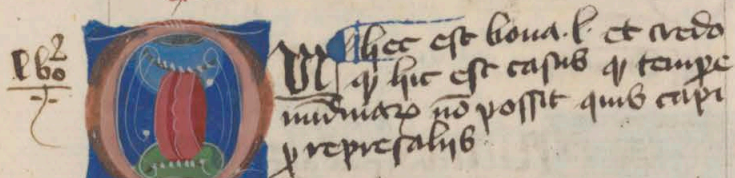 hec est bona .l. et credo
qͥ hic est casus qͥ tempe
nūdinaꝝ nō possit quis capi
ꝓ represaliis